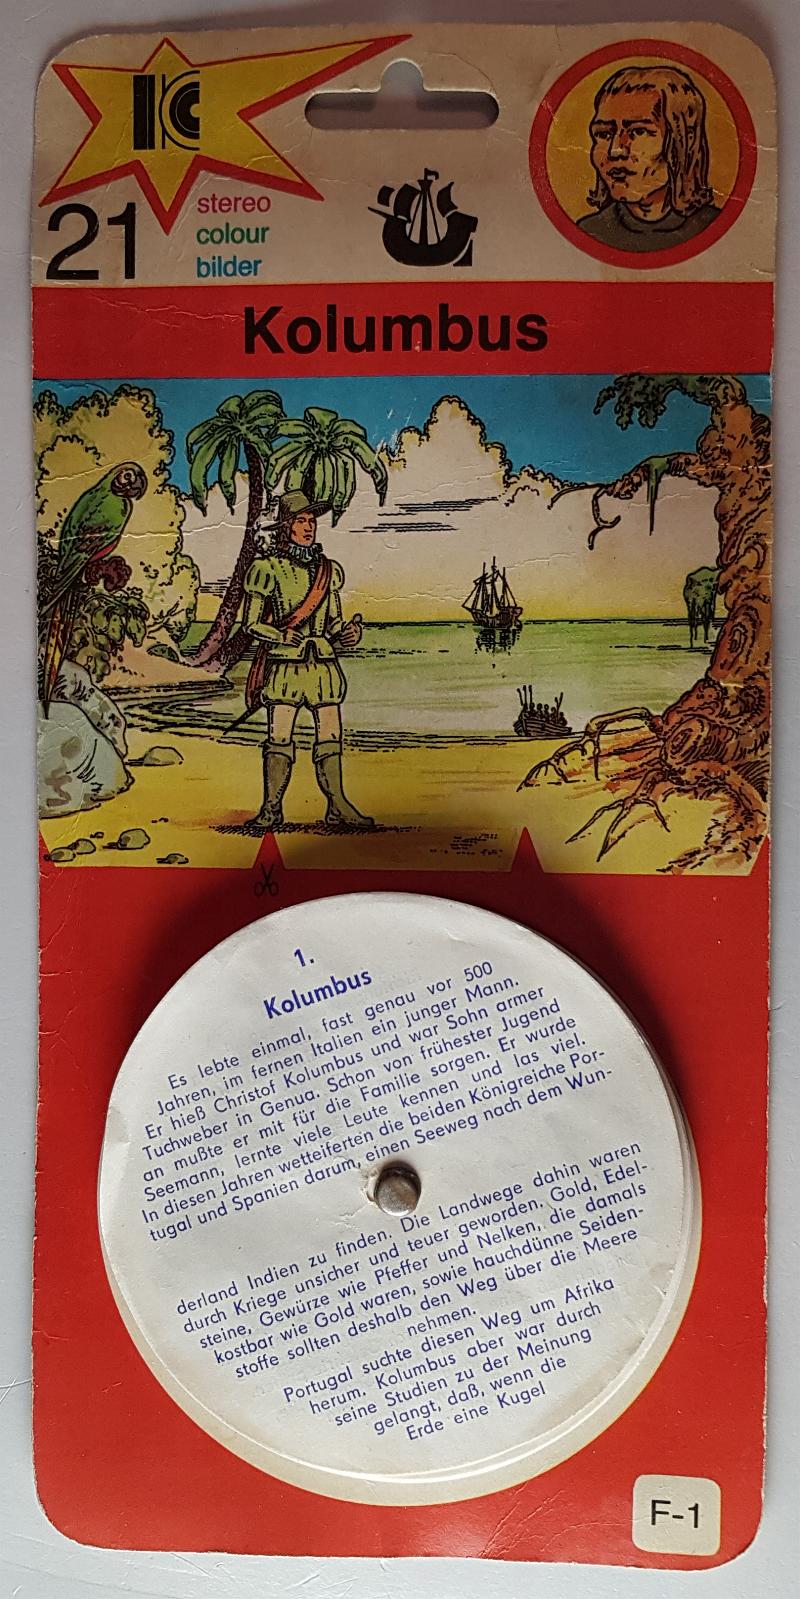 KC
21
stereo
colour
bilder
Kolumbus
1.
Kolumbus
Es lebte einmal, fast genau vor 500
Jahren, im fernen Italien ein junger Mann.
Er hieß Christof Kolumbus und war Sohn armer
Tuchweber in Genua. Schon von frühester Jugend
an mußte er mit für die Familie sorgen. Er wurde
Seemann, lernte viele Leute kennen und las viel.
In diesen Jahren wetteiferten die beiden Königreiche Por-
tugal und Spanien darum, einen Seeweg nach dem Wun-
derland Indien zu finden. Die Landwege dahin waren
durch Kriege unsicher und teuer geworden. Gold, Edel-
steine, Gewürze wie Pfeffer und Nelken, die damals
kostbar wie Gold waren, sowie hauchdünne Seiden-
stoffe sollten deshalb den Weg über die Meere
nehmen.
Portugal suchte diesen Weg um Afrika
herum. Kolumbus aber war durch
seine Studien zu der Meinung
gelangt, daß, wenn die
Erde eine Kugel
F-1